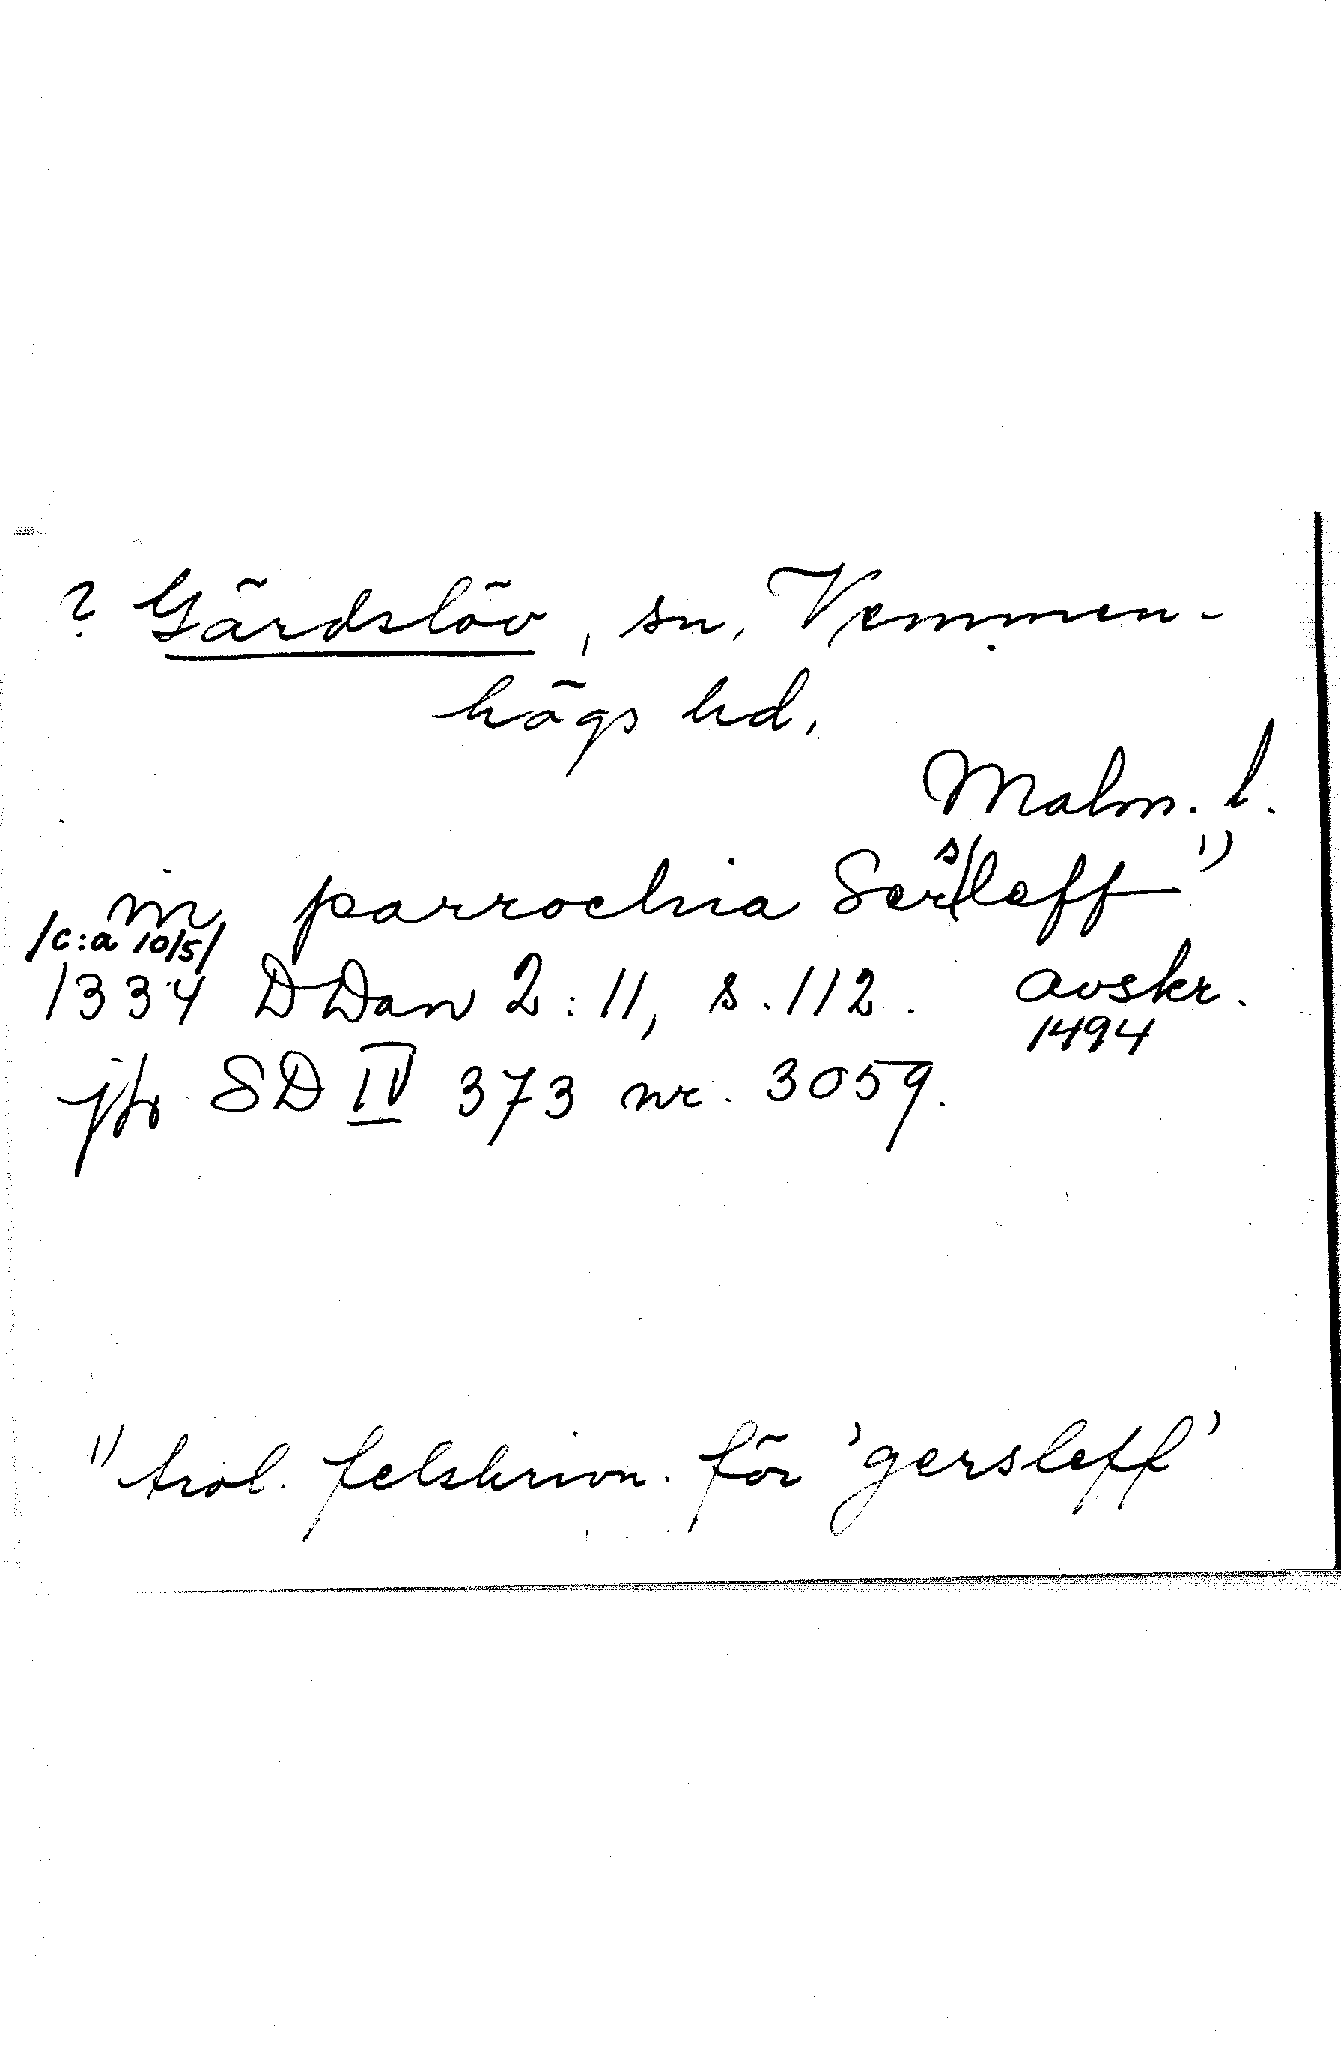 ? Gärdslöv, sn, Vemmen-
högs hd,
Malm. l.
in parrochia Sersleff 1)
/c:a 10/5/
1334 DDan 2:11, s.112. avskr.
1494
jfr SD IV 373 nr. 3059.
1) trol. felskrivn. för 'gersleff'